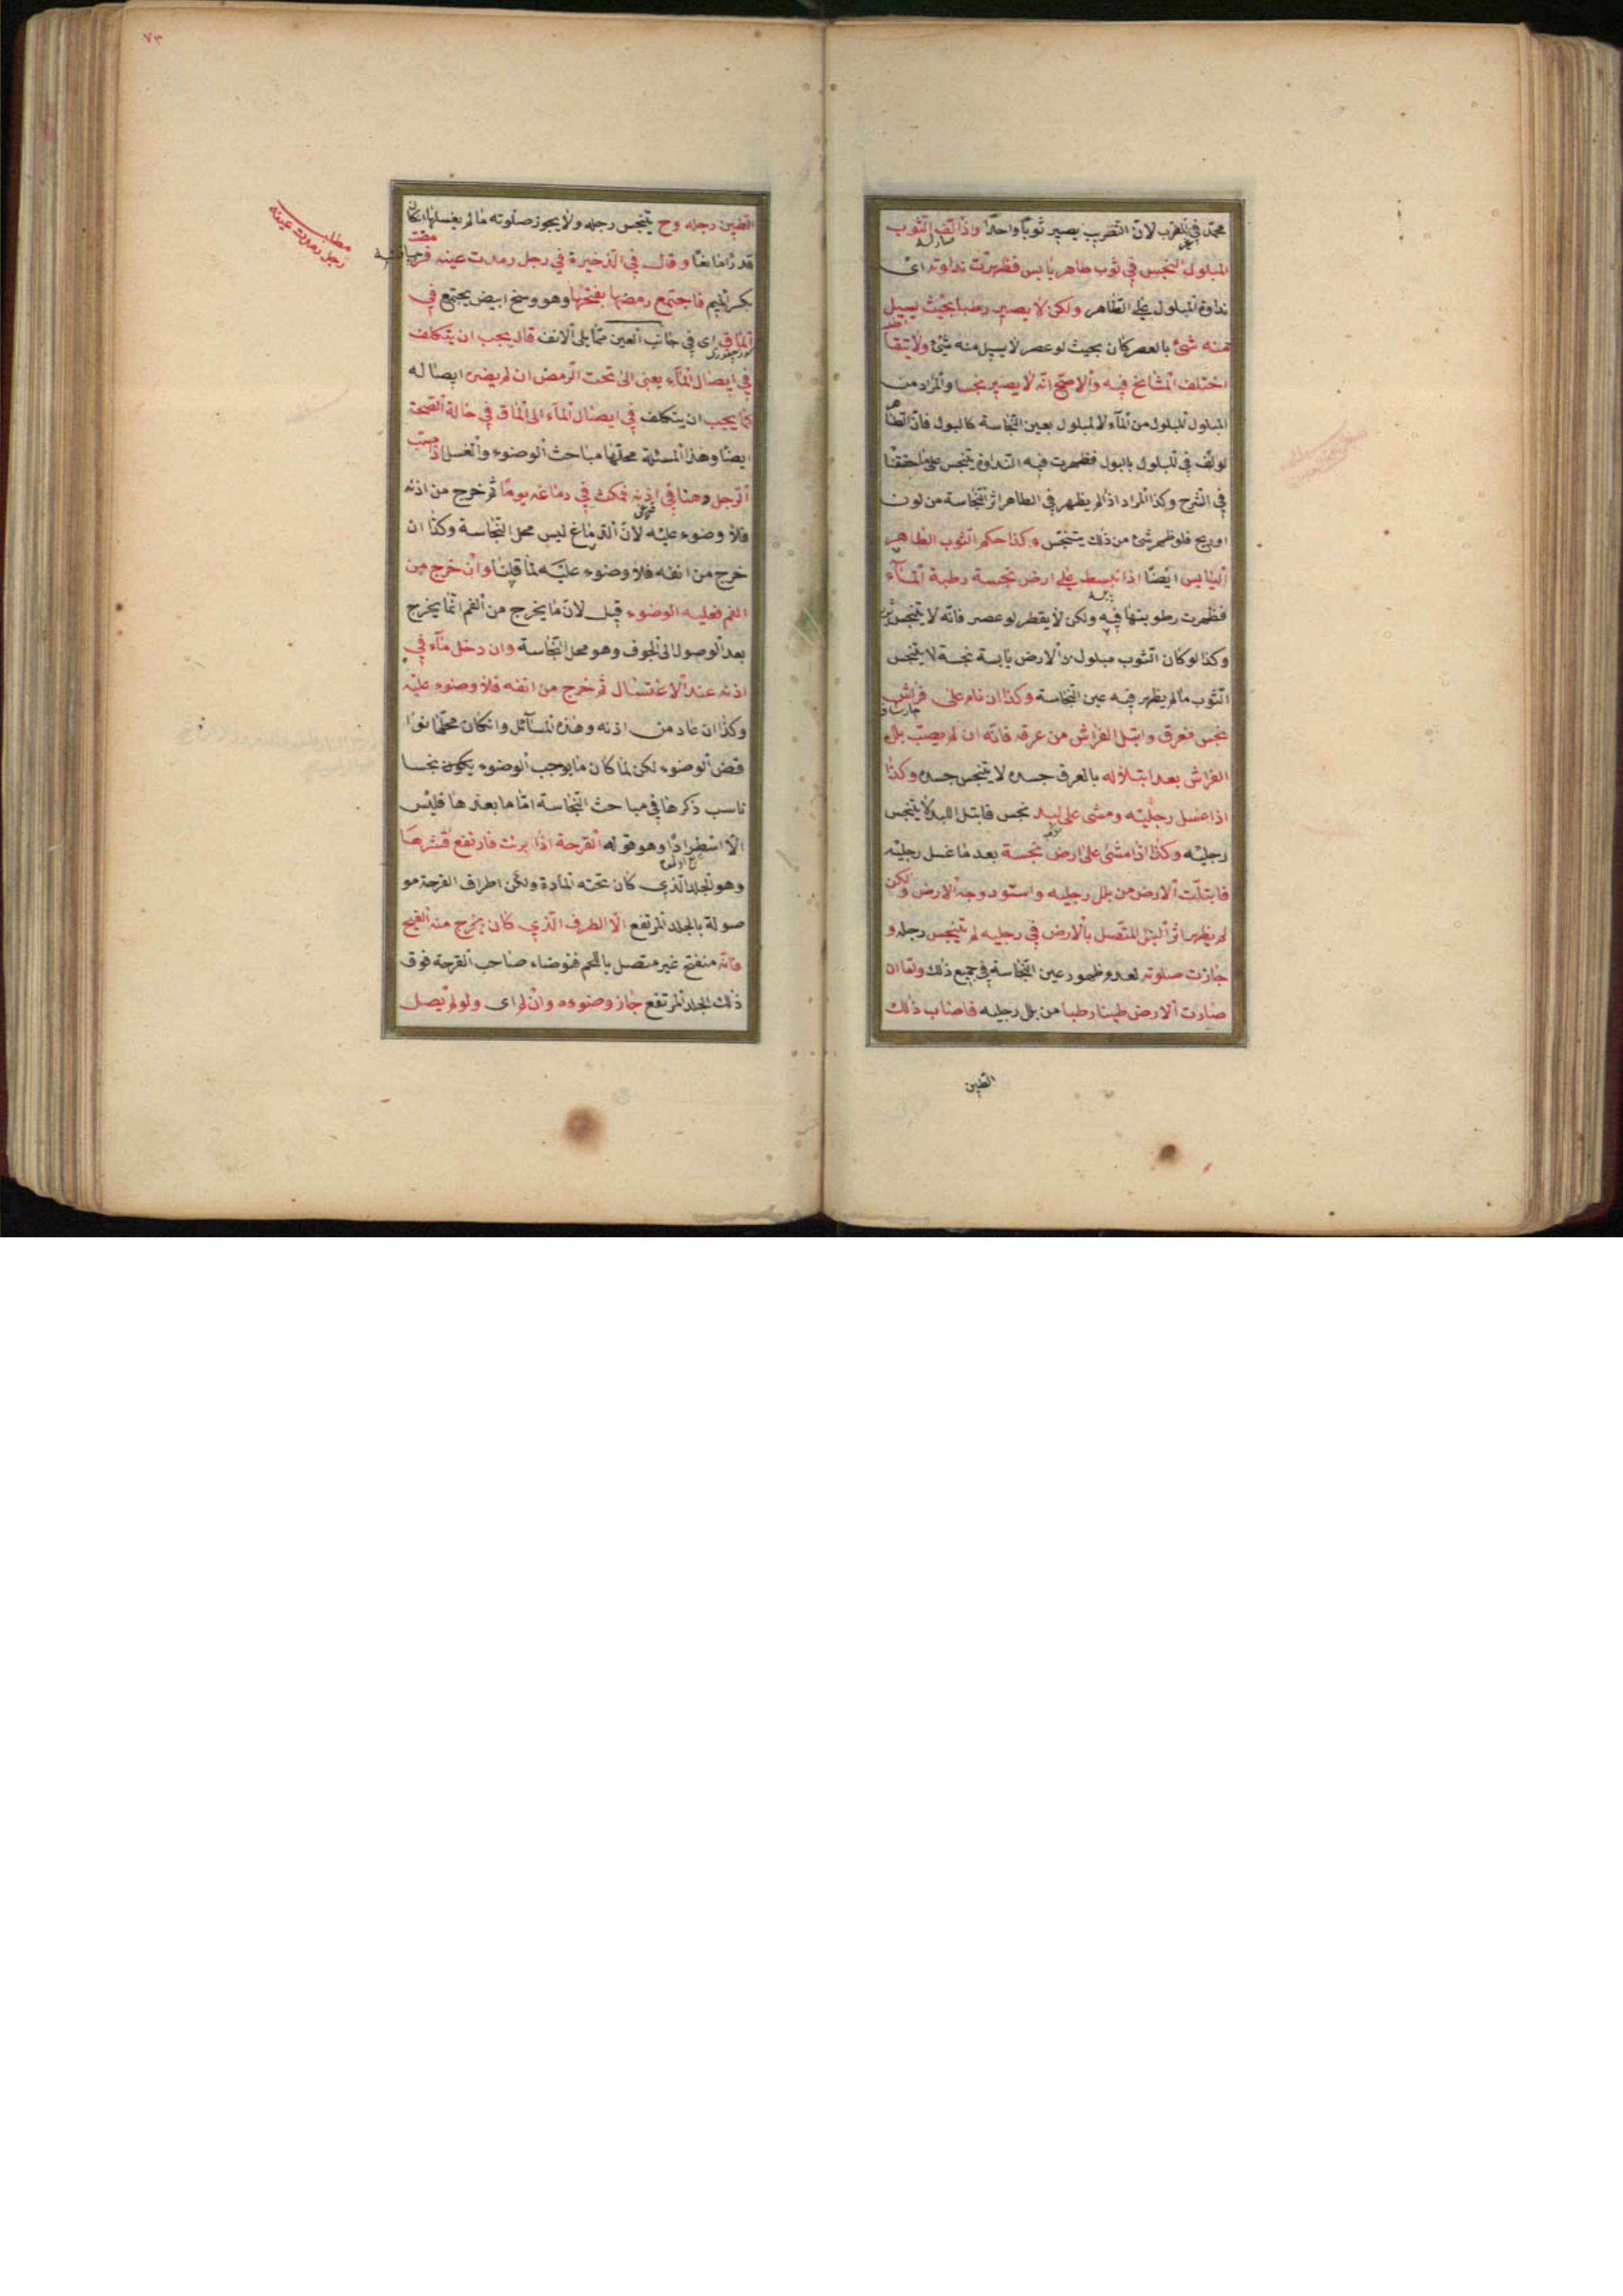 محمد في المضرب لان التضريب يصير ثوبا واحدا واذا لف الثوب
المبلول النجس في ثوب طاهر يابس فظهرت نداوته اى
نداوة المبلول على الطاهر ولكن لا يصير رطبا بحيث يسيل
منه شئ بالعصر كان بحيث لو عصر لا يسيل منه شئ ولا يتقاطر
اختلف المشايخ فيه والاصح انه لا يصير نجسا والمراد من
المبلول المبلول من المآء لا المبلول بعين النجاسة كالبول فان الطاهر
لو لف في المبلول بالبول فظهرت فيه النداوة يتنجس على ما حققنا
في الشرح وكذا المراد اذا لم يظهر في الطاهر اثر النجاسة من لون
او ريح فلو ظهر شئ من ذلك يتنجس وكذا حكم الثوب الطاهر
اليابس ايضا اذا بسط على ارض نجسة رطبة المآء
فظهرت رطوبتها فيه ولكن لا يقطر لو عصر فانه لا يتنجس
وكذا لو كان الثوب مبلولا والارض يابسة نجسة لا يتنجس
الثوب ما لم يظهر فيه عين النجاسة وكذا ان نام على فراش
نجس فعرق وابتل الفراش من عرقه فانه ان لم يصب بلل
الفراش بعد ابتلاله بالعرق جسده لا يتنجس جسده وكذا
اذا غسل رجليه ومشى على لبد نجس فابتل اللبد لا يتنجس
رجليه وكذا اذا مشى على ارض نجسة بعد ما غسل رجليه
فابتلت الارض من بلل رجليه واسود وجه الارض ولكن
لم يظهر اثر البلل المتصل بالارض في رجليه لم يتنجس رجله و
جازت صلوته لعدم ظهور عين النجاسة في جميع ذلك واما ان
صارت الارض طينا رطبا من بلل رجليه فاصاب ذلك
الطين
٧٣
مطلب
رجل رمدت عينه
الطين رجله وح يتنجس رجله ولا يجوز صلوته ما لم يغسلها ان كان
قدرا مانعا وقال في الذخيرة في رجل رمدت عينه فرمضت
بكسر الميم فاجتمع رمضها بفتحها وهو وسخ ابيض يجتمع في
المآق اى في جانب العين مما يلى الانف قال يجب ان يتكلف
في ايصال المآء يعنى الى تحت الرمض ان لم يضره ايصاله
كما يجب ان يتكلف في ايصال المآء الى المآق في حالة الصحة
ايضا وهذا المسئلة محلها مباحث الوضوء والغسل اذا صب
الرجل دهنا في اذنه فمكث في دماغه يوما ثم خرج من اذنه
فلا وضوء عليه لان الدماغ ليس محل النجاسة وكذا ان
خرج من انفه فلا وضوء عليه لما قلنا وان خرج من
الفم فعليه الوضوء قيل لان ما يخرج من الفم انما يخرج
بعد الوصول الى الجوف وهو محل النجاسة وان دخل مآء في
اذنه عند الاغتسال ثم خرج من انفه فلا وضوء عليه
وكذا ان عاد من اذنه وهذه المسآئل وان كان محلها نوا
قض الوضوء لكن لما كان ما يوجب الوضوء يكون نجسا
ناسب ذكرها في مباحث النجاسة اما ما بعدها فليس
الا استطرادا وهو قوله القرحة اذا برئت فارتفع قشرها
وهو الجلد الذي كان تحته المادة ولكن اطراف القرحة مو
صولة بالجلد المرتفع الا الطرف الذي كان يخرج منه القيح
فانه منفتح غير متصل باللحم فتوضاء صاحب القرحة فوق
ذلك الجلد المرتفع جاز وضوءه وان لم اى ولو لم يصل